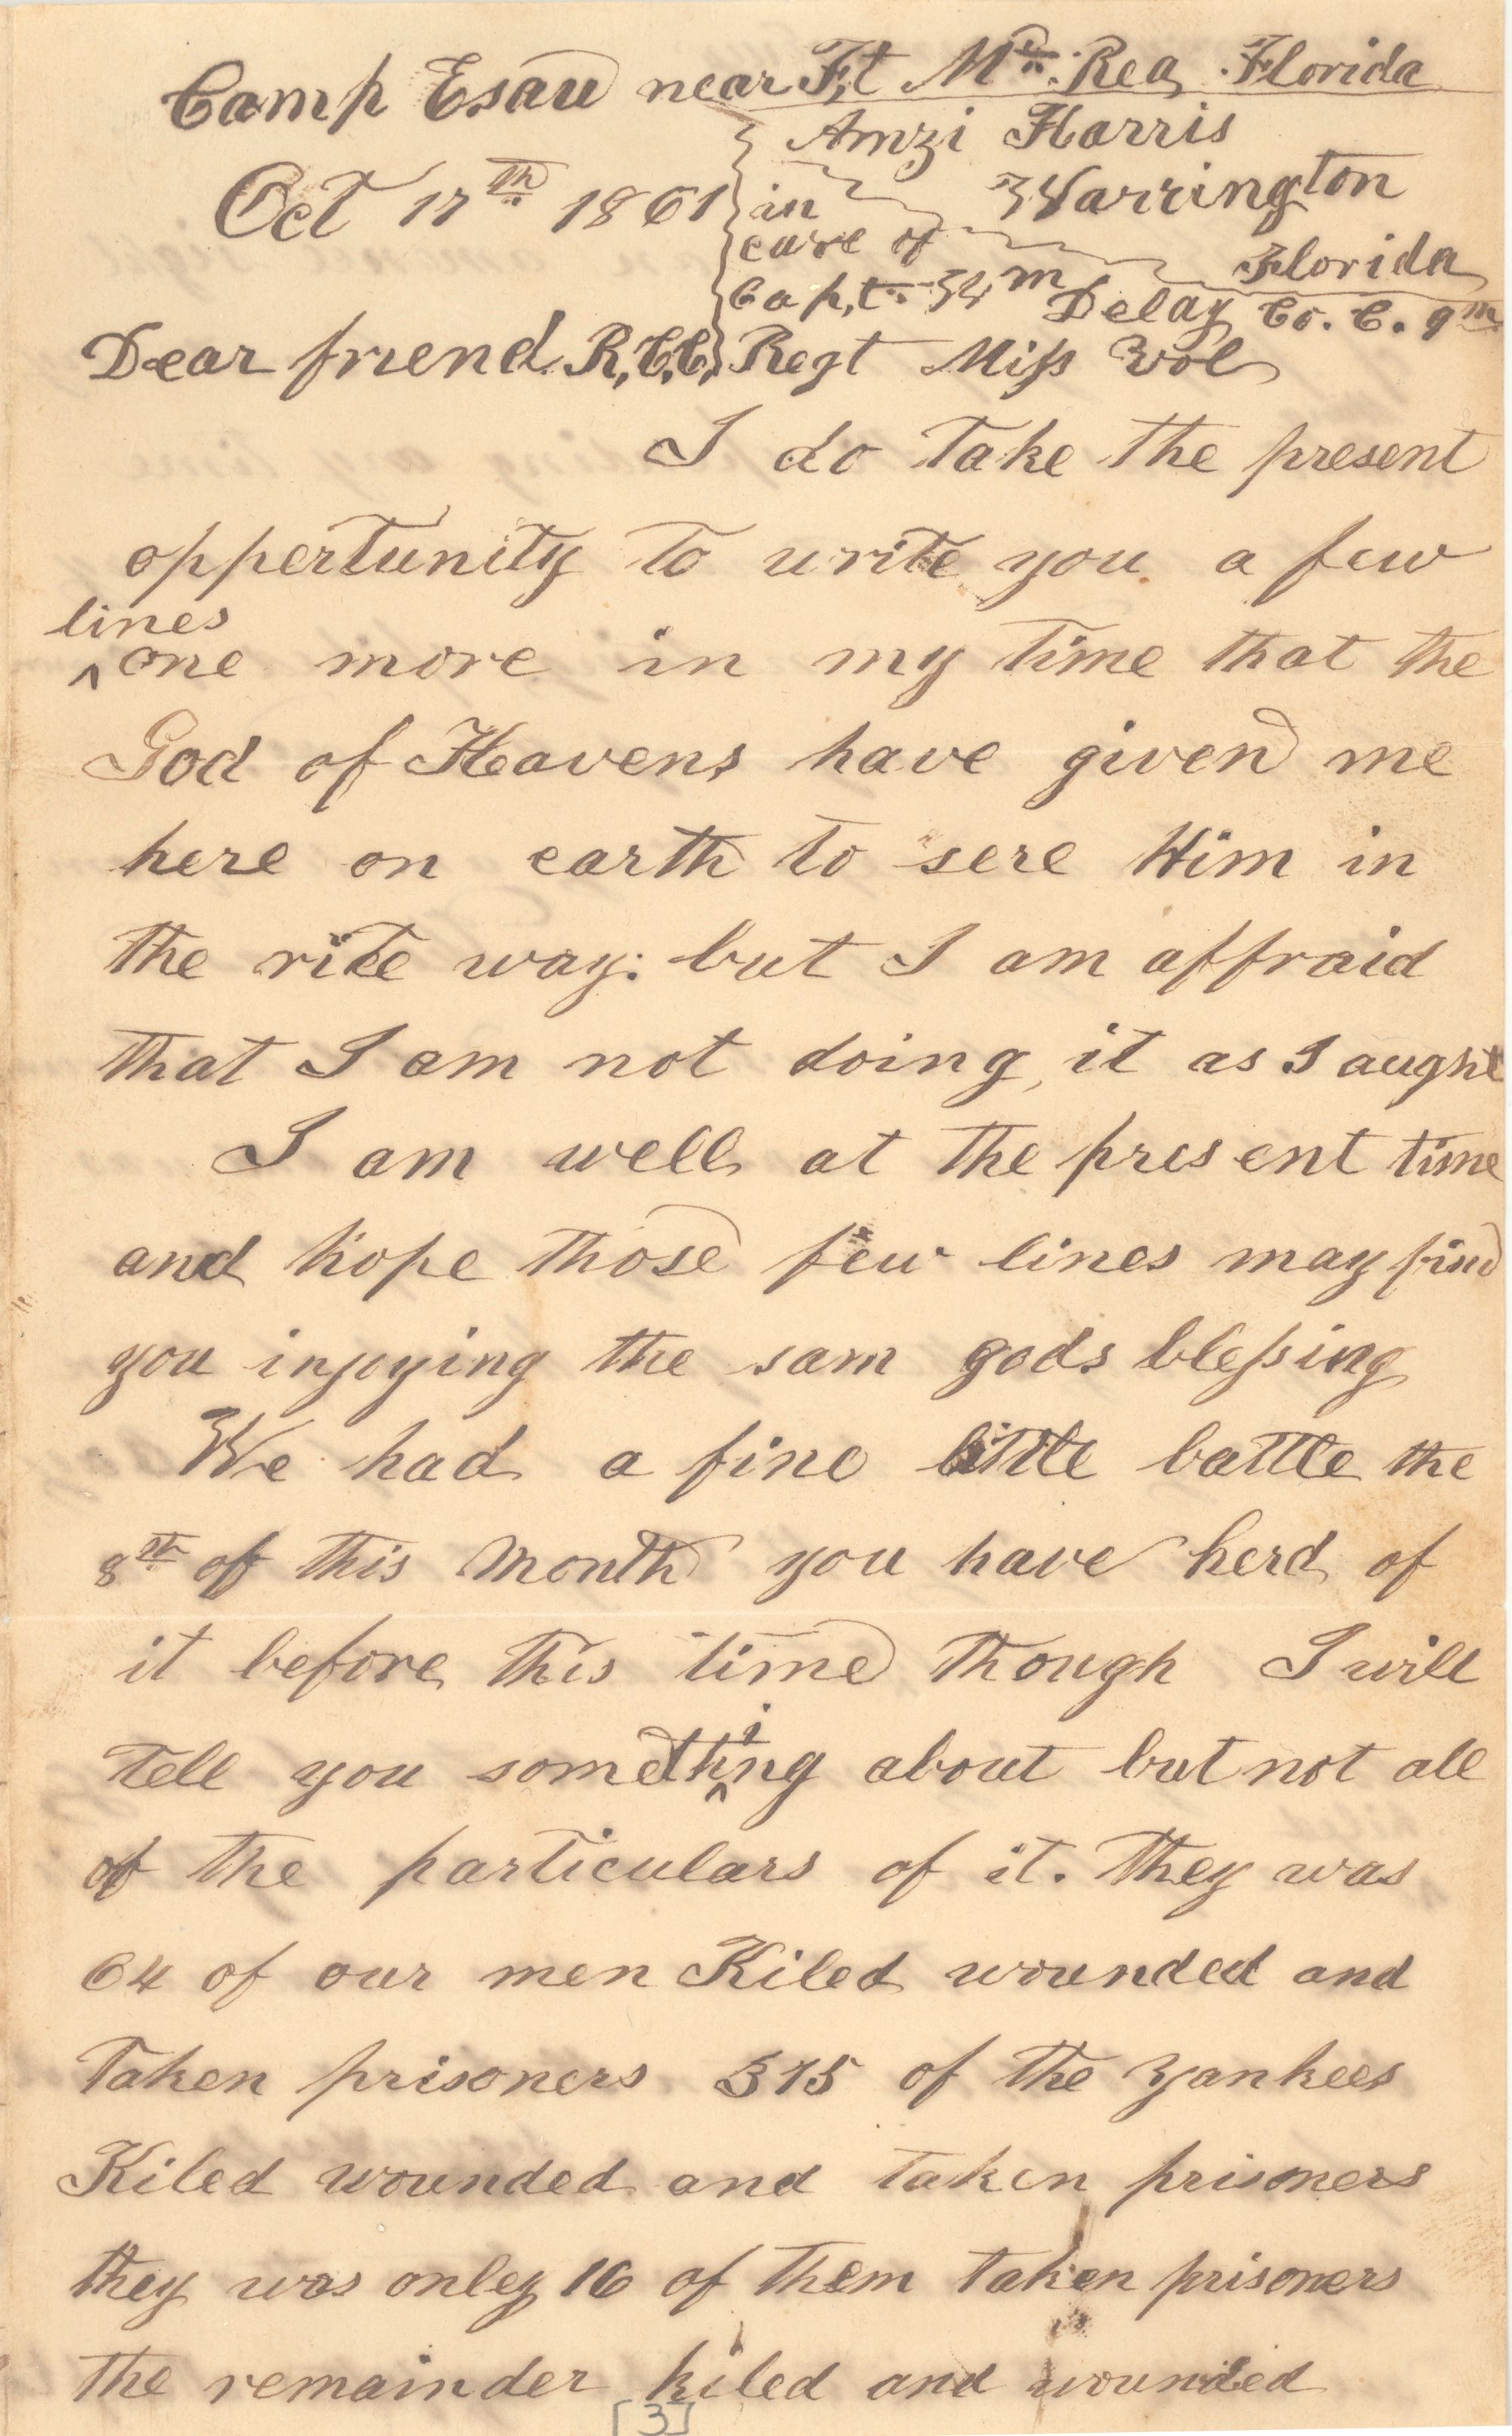 Camp Esau near Ft McRea Florida
Amzi Harris
Oct 17th 1861 in Warrington
care of Florida
Capt. Wm Delay Co. C. 9m
Dear friend R,C,C, Regt Miss Vol
I do take the present
oppertunity to write you a few
lines
^ one more in my time that the
God of Heavens have given me
here on earth to sere Him in
the rite way: but I am affraid
that I am not doing it as I aught
I am well at the present time
and hope those few lines may find
you injoying the sam gods blessing
We had a fine little battle the
8th of this month you have herd of
it before this time though I will
tell you something about but not all
of the particulars of it. they was
64 of our men Kiled wounded and
taken prisoners 375 of the yankees
Kiled wounded and taken prisoners
they was onley 16 of them taken prisoners
the remainder kiled and wounded
[3]